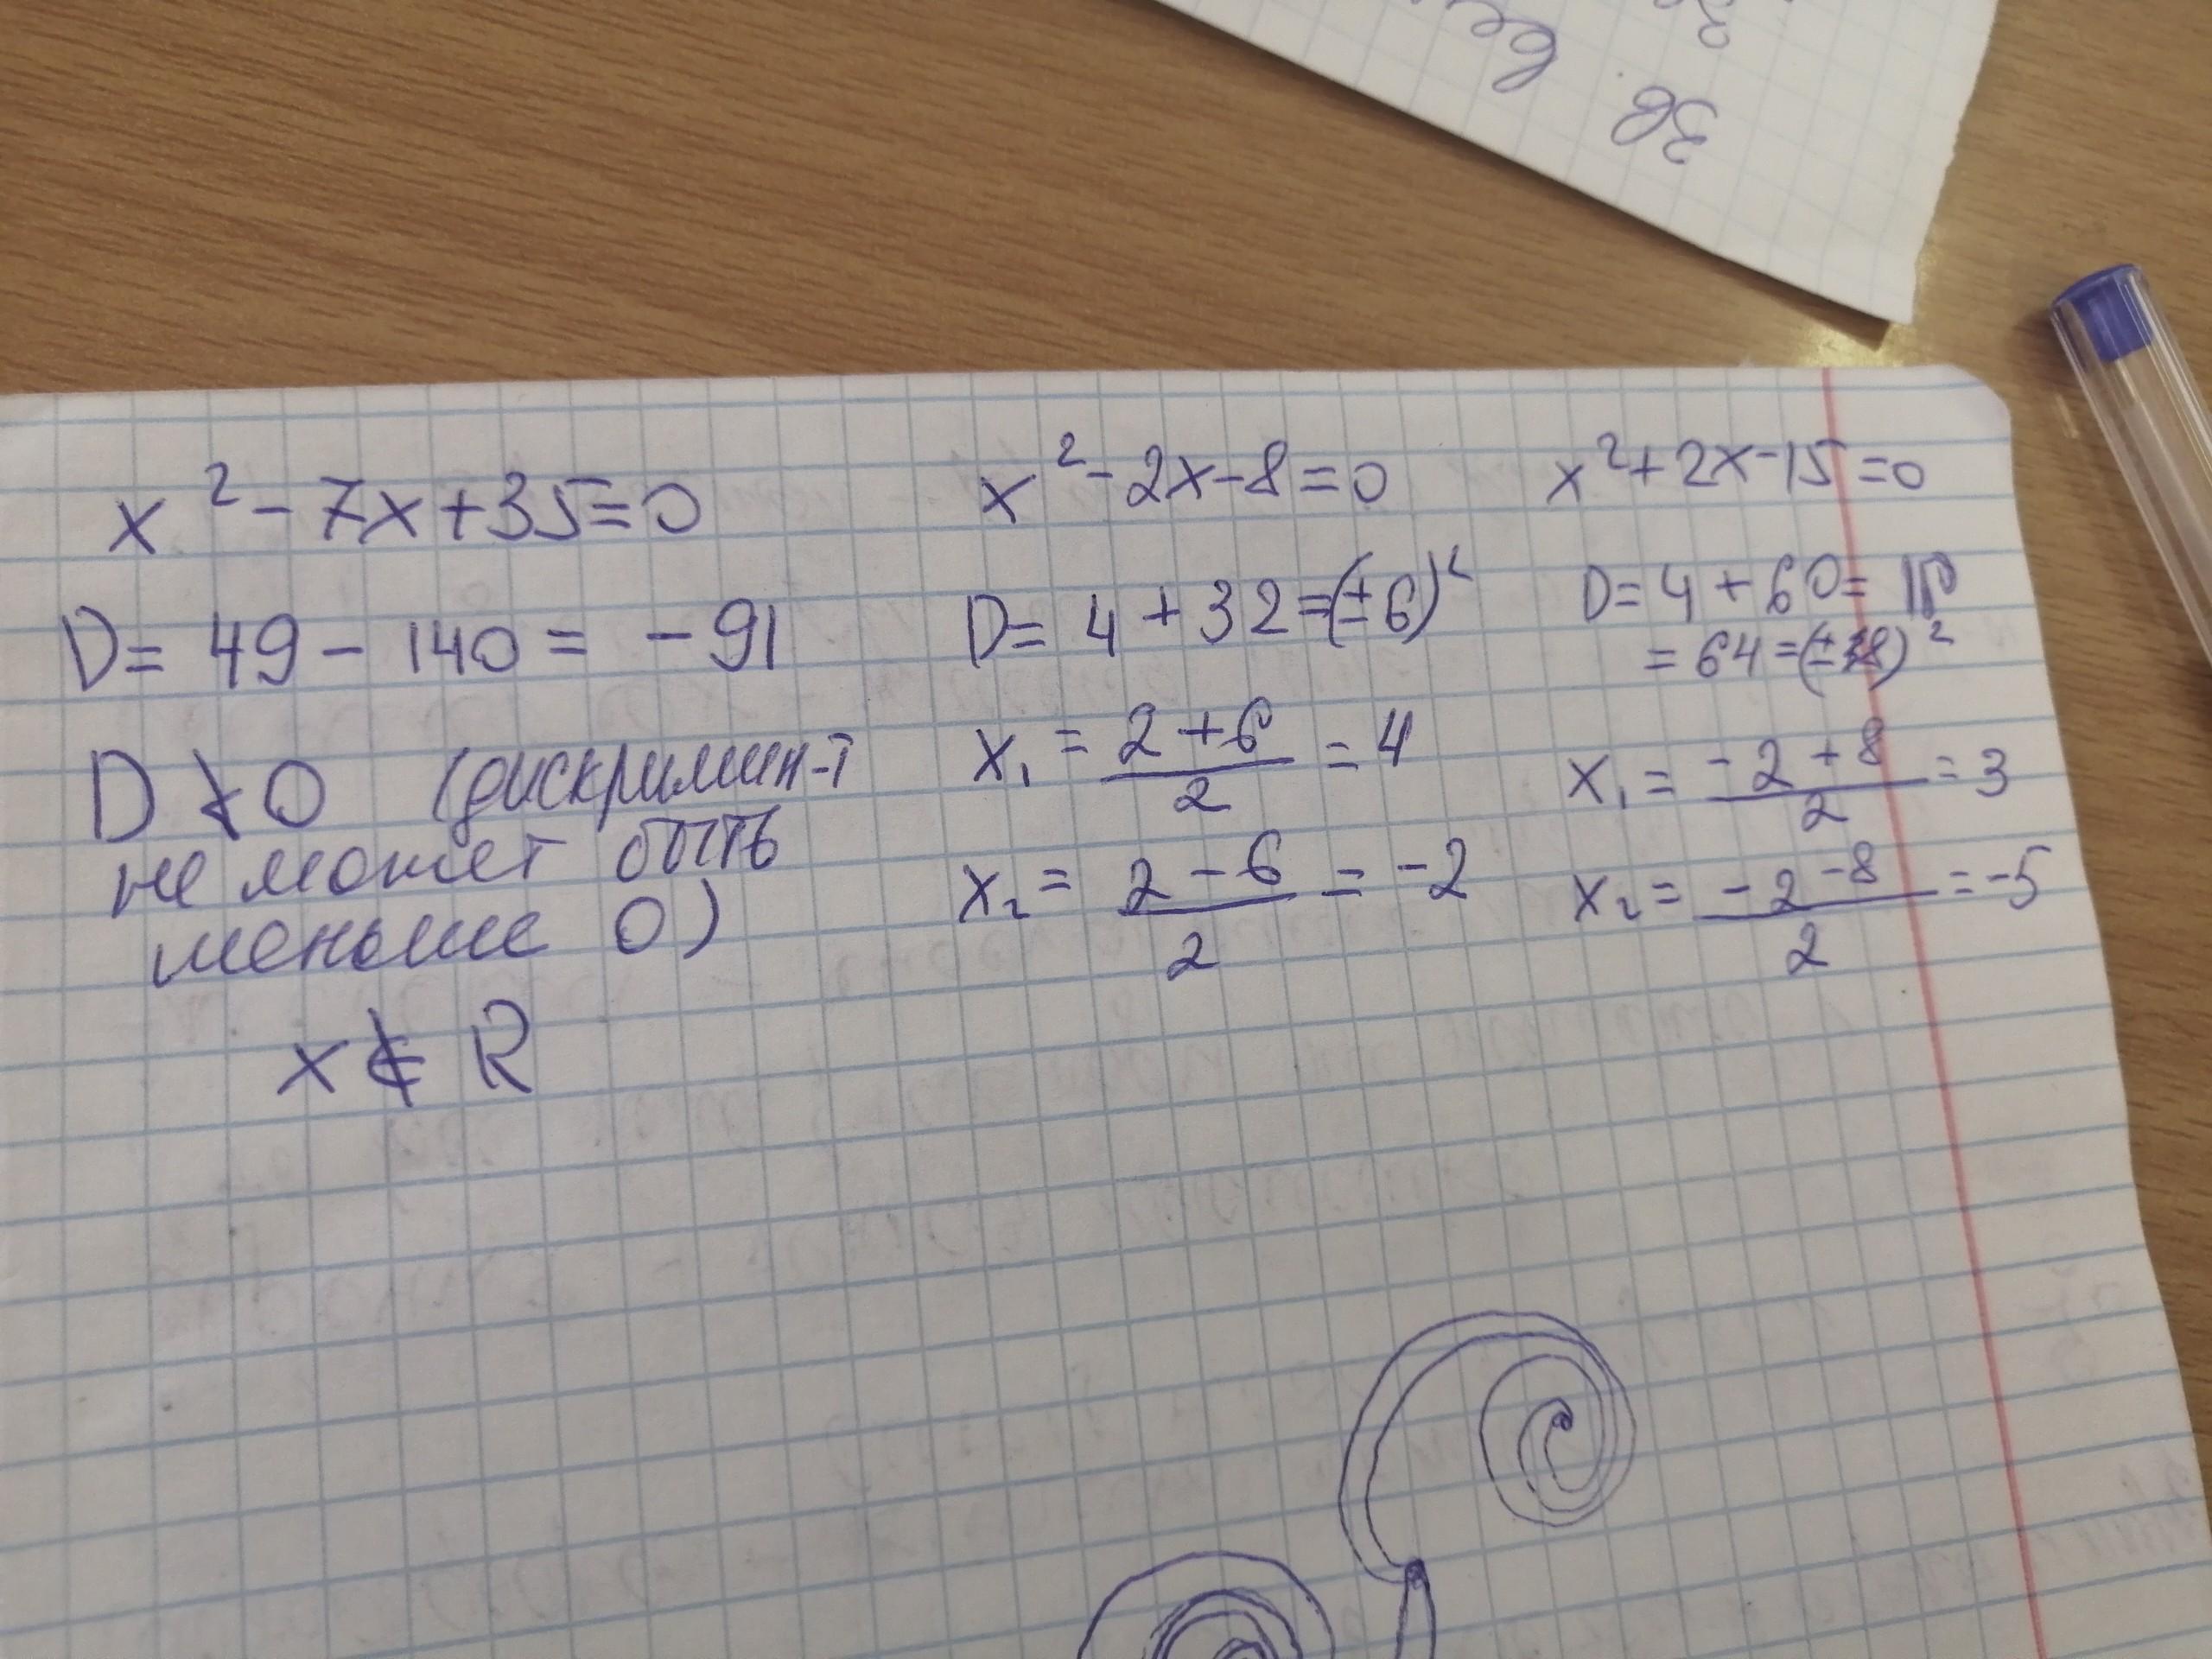 x² - 7x + 35 = 0
D = 49 - 140 = - 91
D ≮ 0 (дискримин-т
не может быть
меньше 0)
x ∉ R
x² - 2x - 8 = 0
D = 4 + 32 = (± 6)²
x₁ = (2 + 6)/2 = 4
x₂ = (2 - 6)/2 = -2
x² + 2x - 15 = 0
D = 4 + 60 =
= 64 = (± 8)²
x₁ = (-2 + 8)/2 = 3
x₂ = (-2 - 8)/2 = -5